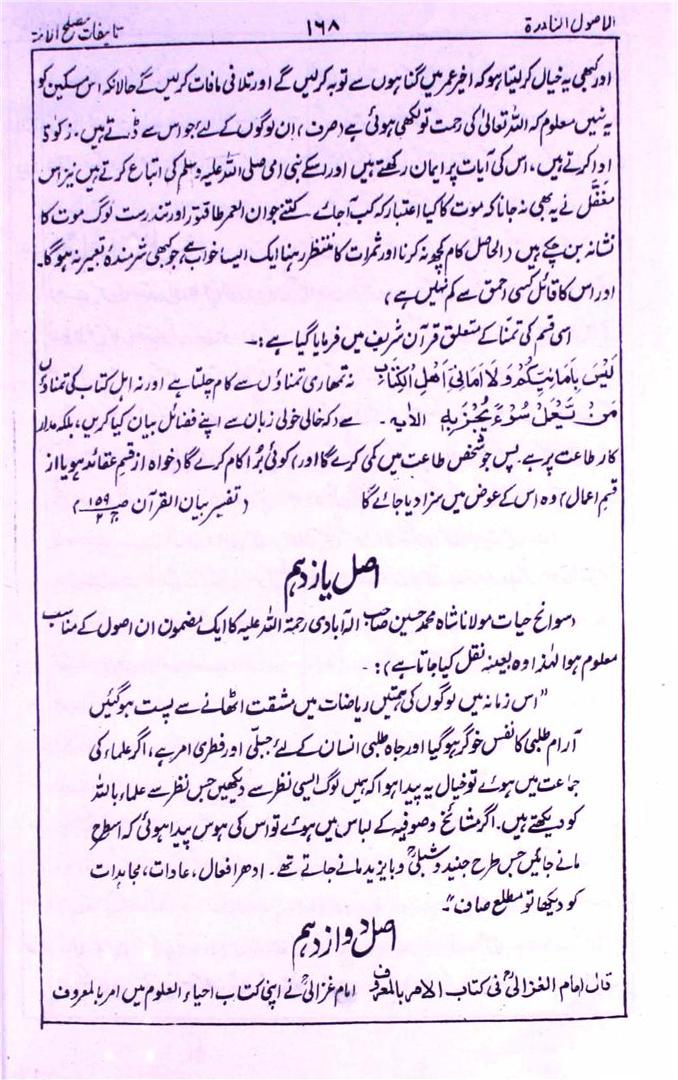 الاصول النادرة ۱۶۸ تالیفات مصلح الامۃ
اور کبھی یہ خیال کر لیتا ہو کہ اخیر عمر میں گناہوں سے توبہ کر لیں گے اور تلافی مافات کر لیں گے حالانکہ اس مسکین کو
یہ نہیں معلوم کہ اللہ تعالیٰ کی رحمت تو لکھی ہوئی ہے (صرف) ان لوگوں کے لئے جو اس سے ڈرتے ہیں، زکوٰۃ
ادا کرتے ہیں، اس کی آیات پر ایمان رکھتے ہیں اور اسکے نبی امی صلی اللہ علیہ وسلم کی اتباع کرتے ہیں نیز اس
مغفّل نے یہ بھی نہ جانا کہ موت کا کیا اعتبار کہ کب آجائے کتنے جوان العمر طاقتور اور تندرست لوگ موت کا
نشانہ بن چکے ہیں (الحاصل کام کچھ نہ کرنا اور ثمرات کا منتظر رہنا ایک ایسا خواب ہے جو کبھی شرمندہ تعبیر نہ ہوگا۔
اور اس کا قائل کسی احمق سے کم نہیں ہے)
اسی قسم کی تمنا کے متعلق قرآن شریف میں فرمایا گیا ہے:۔
لَیْسَ بِاَمَانِیِّکُمْ وَلَا اَمَانِیِّ اَهْلِ الْکِتَابِ نہ تمہاری تمناؤں سے کام چلتا ہے اور نہ اہل کتاب کی تمناؤں
مَنْ یَّعْمَلْ سُوْءً یُّجْزَ بِهٖ الآیہ۔ سے (کہ خالی خولی زبان سے اپنے فضائل بیان کیا کریں، بلکہ مدار
کار طاعت پر ہے۔ پس جو شخص طاعت میں کمی کرے گا اور) کوئی بُرا کام کرے گا (خواہ از قسمِ عقائد ہو یا از
قسمِ اعمال) وہ اس کے عوض میں سزا دیا جائے گا (تفسیر بیان القرآن ص۱۵۹ ج۲)
اصل یازدہم
(سوانح حیات مولانا شاہ محمد حسین صاحب الہ آبادی رحمۃ اللہ علیہ کا ایک مضمون ان اصول کے مناسب
معلوم ہوا لہٰذا وہ بعینہٖ نقل کیا جاتا ہے):
"اس زمانہ میں لوگوں کی ہمتیں ریاضات میں مشقت اٹھانے سے پست ہوگئیں
آرام طلبی کا نفس خوگر ہوگیا اور جاہ طلبی انسان کے لئے جبلّی اور فطری امر ہے، اگر علماء کی
جماعت میں ہوئے تو خیال یہ پیدا ہوا کہ ہمیں لوگ ایسی نظر سے دیکھیں جس نظر سے علماء باللہ
کو دیکھتے ہیں۔ اگر مشائخ و صوفیہ کے لباس میں ہوئے تو اس کی ہوس پیدا ہوئی کہ اسطرح
مانے جائیں جس طرح جنید و شبلیؒ و بایزید مانے جاتے تھے۔ ادھر افعال، عادات، مجاہدات
کو دیکھا تو مطلع صاف"۔
اصل دوازدہم
قال امام الغزالیؒ فی کتاب الامر بالمعروف امام غزالیؒ نے اپنی کتاب احیاء العلوم میں امر بالمعروف